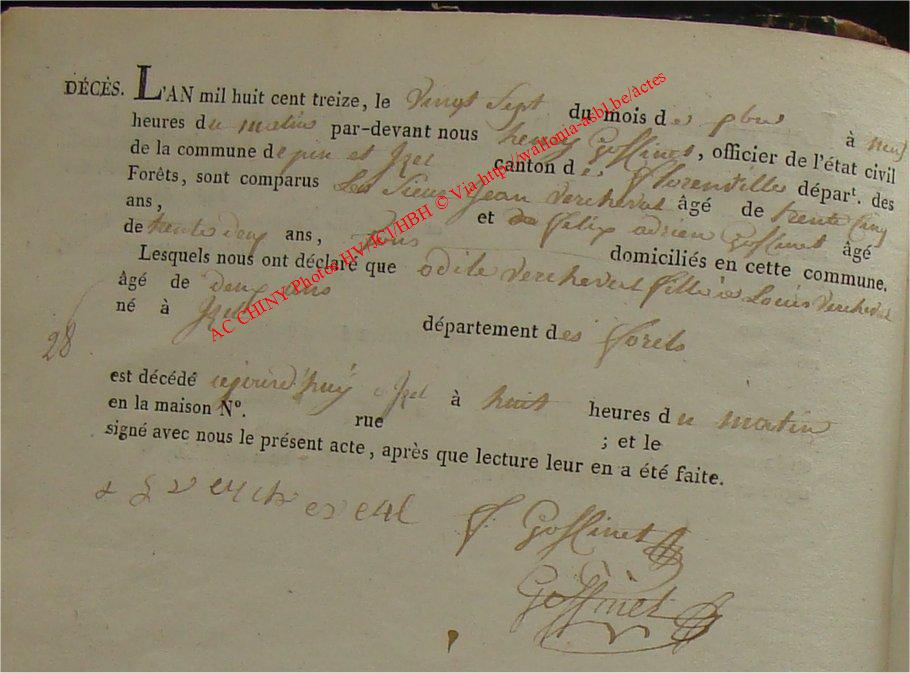 DÉCÈS. L'AN mil huit cent treize, le Vingt Sept du mois de à neuf
heures du matin par-devant nous henry Goffinet, officier de l'état civil
de la commune de pin et Izel canton de Florenville départ. des
Forêts, sont comparus Les Sieur Jean Vercheval âgé de trente Cinq
ans, et de Felix adrien Goffinet âgé
de trente deux ans, domiciliés en cette commune.
Lesquels nous ont déclaré que odile Vercheval fille a Louis Vercheval
âgé de deux ans
né à Izel département des forets
28
est décédé ajourd'huy a Izel à huit heures du matin
en la maison N°. rue ; et le
signé avec nous le présent acte, après que lecture leur en a été faite.
F Goffinet
Goffinet
AC CHINY Photos HV/ICJ/HBH © Via http://wallonia-asbl.be/actes